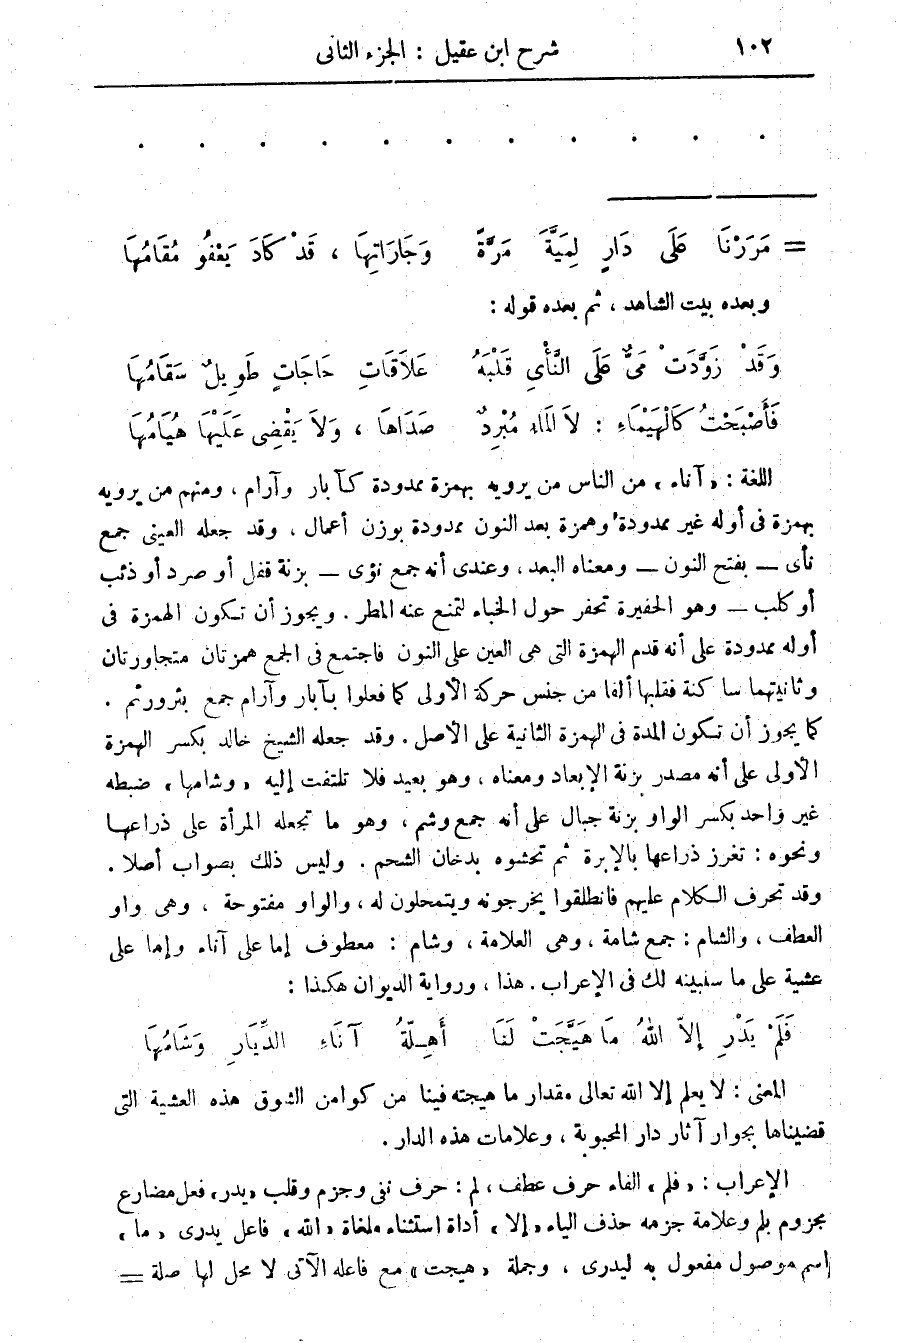 ١٠٢ شرح ابن عقيل : الجزء الثانى
. . . . . . . . . . .
= مَرَرْنَا عَلَى دَارٍ لِمَيَّةَ مَرَّةً وَجَارَاتِهَا ، قَدْ كَادَ يَعْفُو مُقَامُهَا
وبعده بيت الشاهد ، ثم بعده قوله :
وَقَدْ زَوَّدَتْ مَىٌّ عَلَى النَّأْىِ قَلْبَهُ عَلاَقَاتِ حَاجَاتٍ طَوِيلٌ سَقَامُهَا
فَأَصْبَحْتُ كَالْهَيْمَاءِ : لاَ المَاءُ مُبْرِدٌ صَدَاهَا ، وَلاَ يَقْضِى عَلَيْهَا هُيَامُهَا
اللغة : « آناء » من الناس من يرويه بهمزة ممدودة كآبار وآرام ، ومنهم من يرويه
بهمزة فى أوله غير ممدودة وهمزة بعد النون ممدودة بوزن أعمال ، وقد جعله العينى جمع
نأى — بفتح النون — ومعناه البعد ، وعندى أنه جمع نؤى — بزنة قفل أو صرد أو ذئب
أو كلب — وهو الحفيرة تحفر حول الخباء لتمنع عنه المطر . ويجوز أن تكون الهمزة فى
أوله ممدودة على أنه قدم الهمزة التى هى العين على النون فاجتمع فى الجمع همزتان متجاورتان
وثانيتهما ساكنة فقلبها ألفا من جنس حركة الأولى كما فعلوا بآبار وآرام جمع بئر ورئم .
كما يجوز أن تكون المدة فى الهمزة الثانية على الأصل . وقد جعله الشيخ خالد بكسر الهمزة
الأولى على أنه مصدر بزنة الإبعاد ومعناه ، وهو بعيد فلا تلتفت إليه « وشامها » ضبطه
غير واحد بكسر الواو بزنة جبال على أنه جمع وشم ، وهو ما تجعله المرأة على ذراعها
ونحوه : تغرز ذراعها بالإبرة ثم تحشوه بدخان الشحم . وليس ذلك بصواب أصلا .
وقد تحرف الكلام عليهم فانطلقوا يخرجونه ويتمحلون له ، والواو مفتوحة ، وهى واو
العطف ، والشام : جمع شامة ، وهى العلامة ، وشام : معطوف إما على آناء وإما على
عشية على ما سنبينه لك فى الإعراب . هذا ، ورواية الديوان هكذا :
فَلَمْ يَدْرِ إِلاَّ اللهُ مَا هَيَّجَتْ لَنَا أَهِلَّةُ آنَاءِ الدِّيَارِ وَشَامُهَا
المعنى : لا يعلم إلا الله تعالى مقدار ما هيجته فينا من كوامن الشوق هذه العشية التى
قضيناها بجوار آثار دار المحبوبة ، وعلامات هذه الدار .
الإعراب : « فلم » الفاء حرف عطف ، لم : حرف نفى وجزم وقلب « يدر » فعل مضارع
مجزوم بلم وعلامة جزمه حذف الياء « إلا » أداة استثناء ملغاة « الله » فاعل يدرى « ما »
اسم موصول مفعول به ليدرى ، وجملة « هيجت » مع فاعله الآتى لا محل لها صلة =